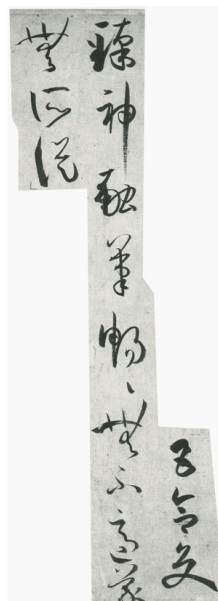 五合交
臻神融筆暢〻無不適蒙
無所從